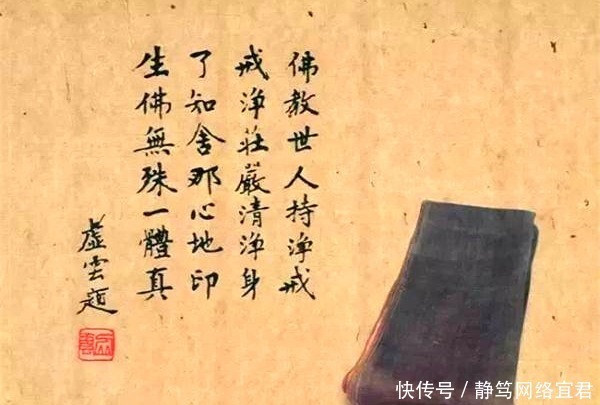 佛教世人持淨戒
戒淨莊嚴清淨身
了知舍那心地印
生佛無殊一體真
虛雲題
快传号 / 静笃网络宜君